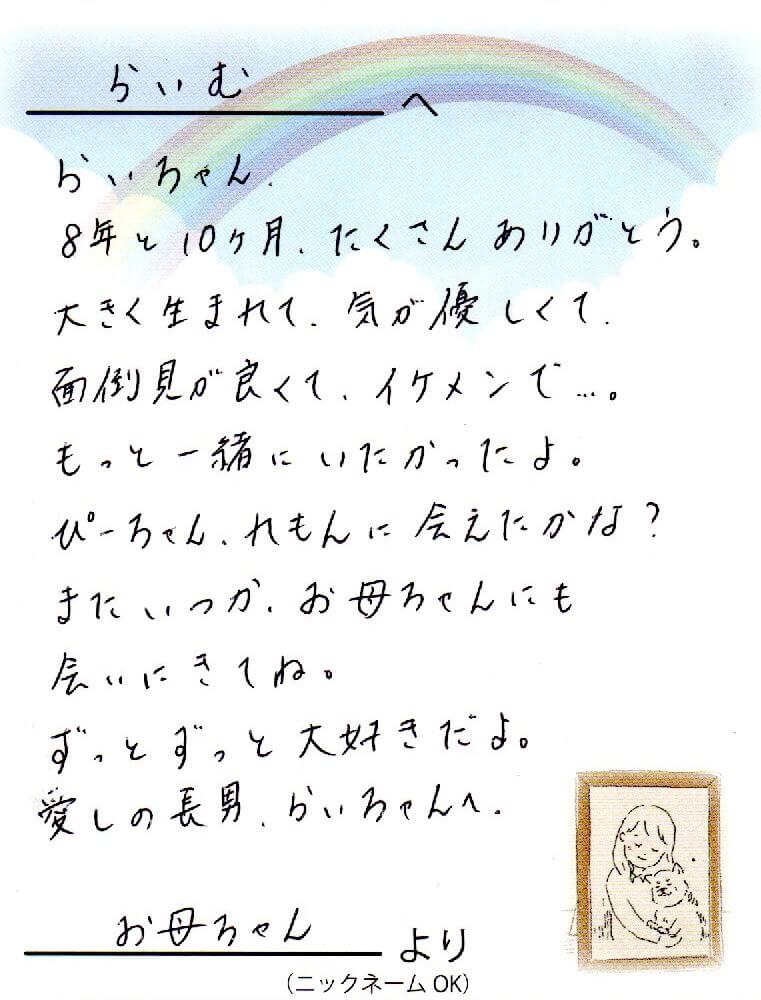 らいむ へ
らいちゃん、
8年と10ヶ月、たくさんありがとう。
大きく生まれて、気が優しくて、
面倒見が良くて、イケメンで…。
もっと一緒にいたかったよ。
ぴーちゃん、れもんに会えたかな？
またいつか、お母ちゃんにも
会いにきてね。
ずっとずっと大好きだよ。
愛しの長男、らいちゃんへ、
お母ちゃん より
（ニックネームOK）